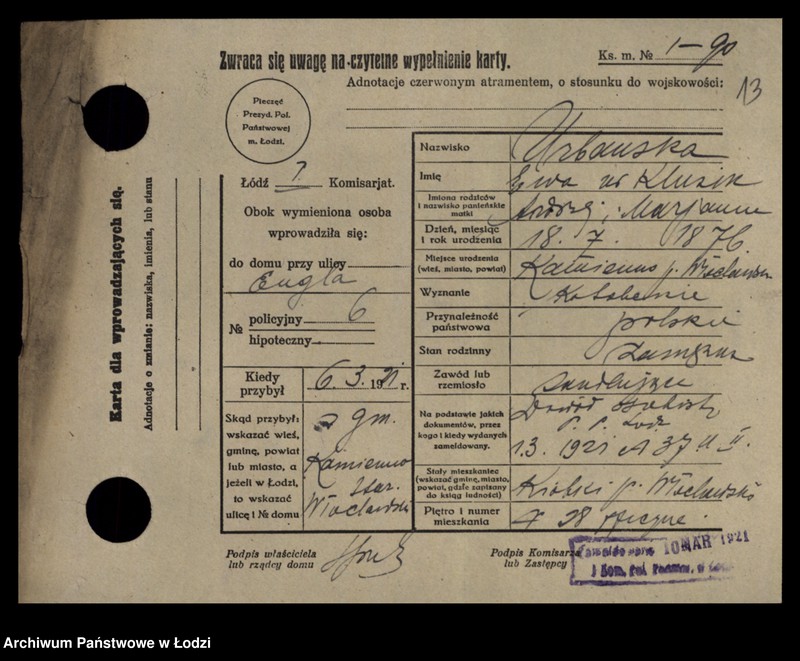 Zwraca się uwagę na czytelne wypełnienie karty.
Ks. m. № 1-90
13
Adnotacje czerwonym atramentem, o stosunku do wojskowości:
Karta dla wprowadzających się.
Adnotacje o zmianie: nazwiska, imienia, lub stanu
Pieczęć
Prezyd. Pol.
Państwowej
m. Łodzi.
Łódź 7. Komisarjat.
Obok wymieniona osoba
wprowadziła się:
do domu przy ulicy
Engla
№ policyjny 6
hipoteczny
Kiedy przybył 6.3.1921 r.
Skąd przybył:
wskazać wieś,
gminę, powiat
lub miasto, a
jeżeli w Łodzi,
to wskazać
ulicę i № domu
z gm.
Kamienno
Włocławski
Nazwisko Urbańska
Imię Ewa
Imiona rodziców
i nazwisko panieńskie
matki
Andrzej i Marjanna
Dzień, miesiąc
i rok urodzenia
18. 7. 1876.
Miejsce urodzenia
(wieś, miasto, powiat)
Kamienno p.
Wyznanie
Przynależność
państwowa
polskie
Stan rodzinny
Zawód lub
rzemiosło
Na podstawie jakich
dokumentów, przez
kogo i kiedy wydanych
zameldowany.
Dowód
P. P. Łódź
1.3.1921 № 37
Stały mieszkaniec
(wskazać gminę, miasto,
powiat, gdzie zapisany
do ksiąg ludności)
p. Włocławski
Piętro i numer
mieszkania
28 oficyna.
Podpis właściciela
lub rządcy domu
Podpis Komisarza
lub Zastępcy
10 MAR 1921
Archiwum Państwowe w Łodzi